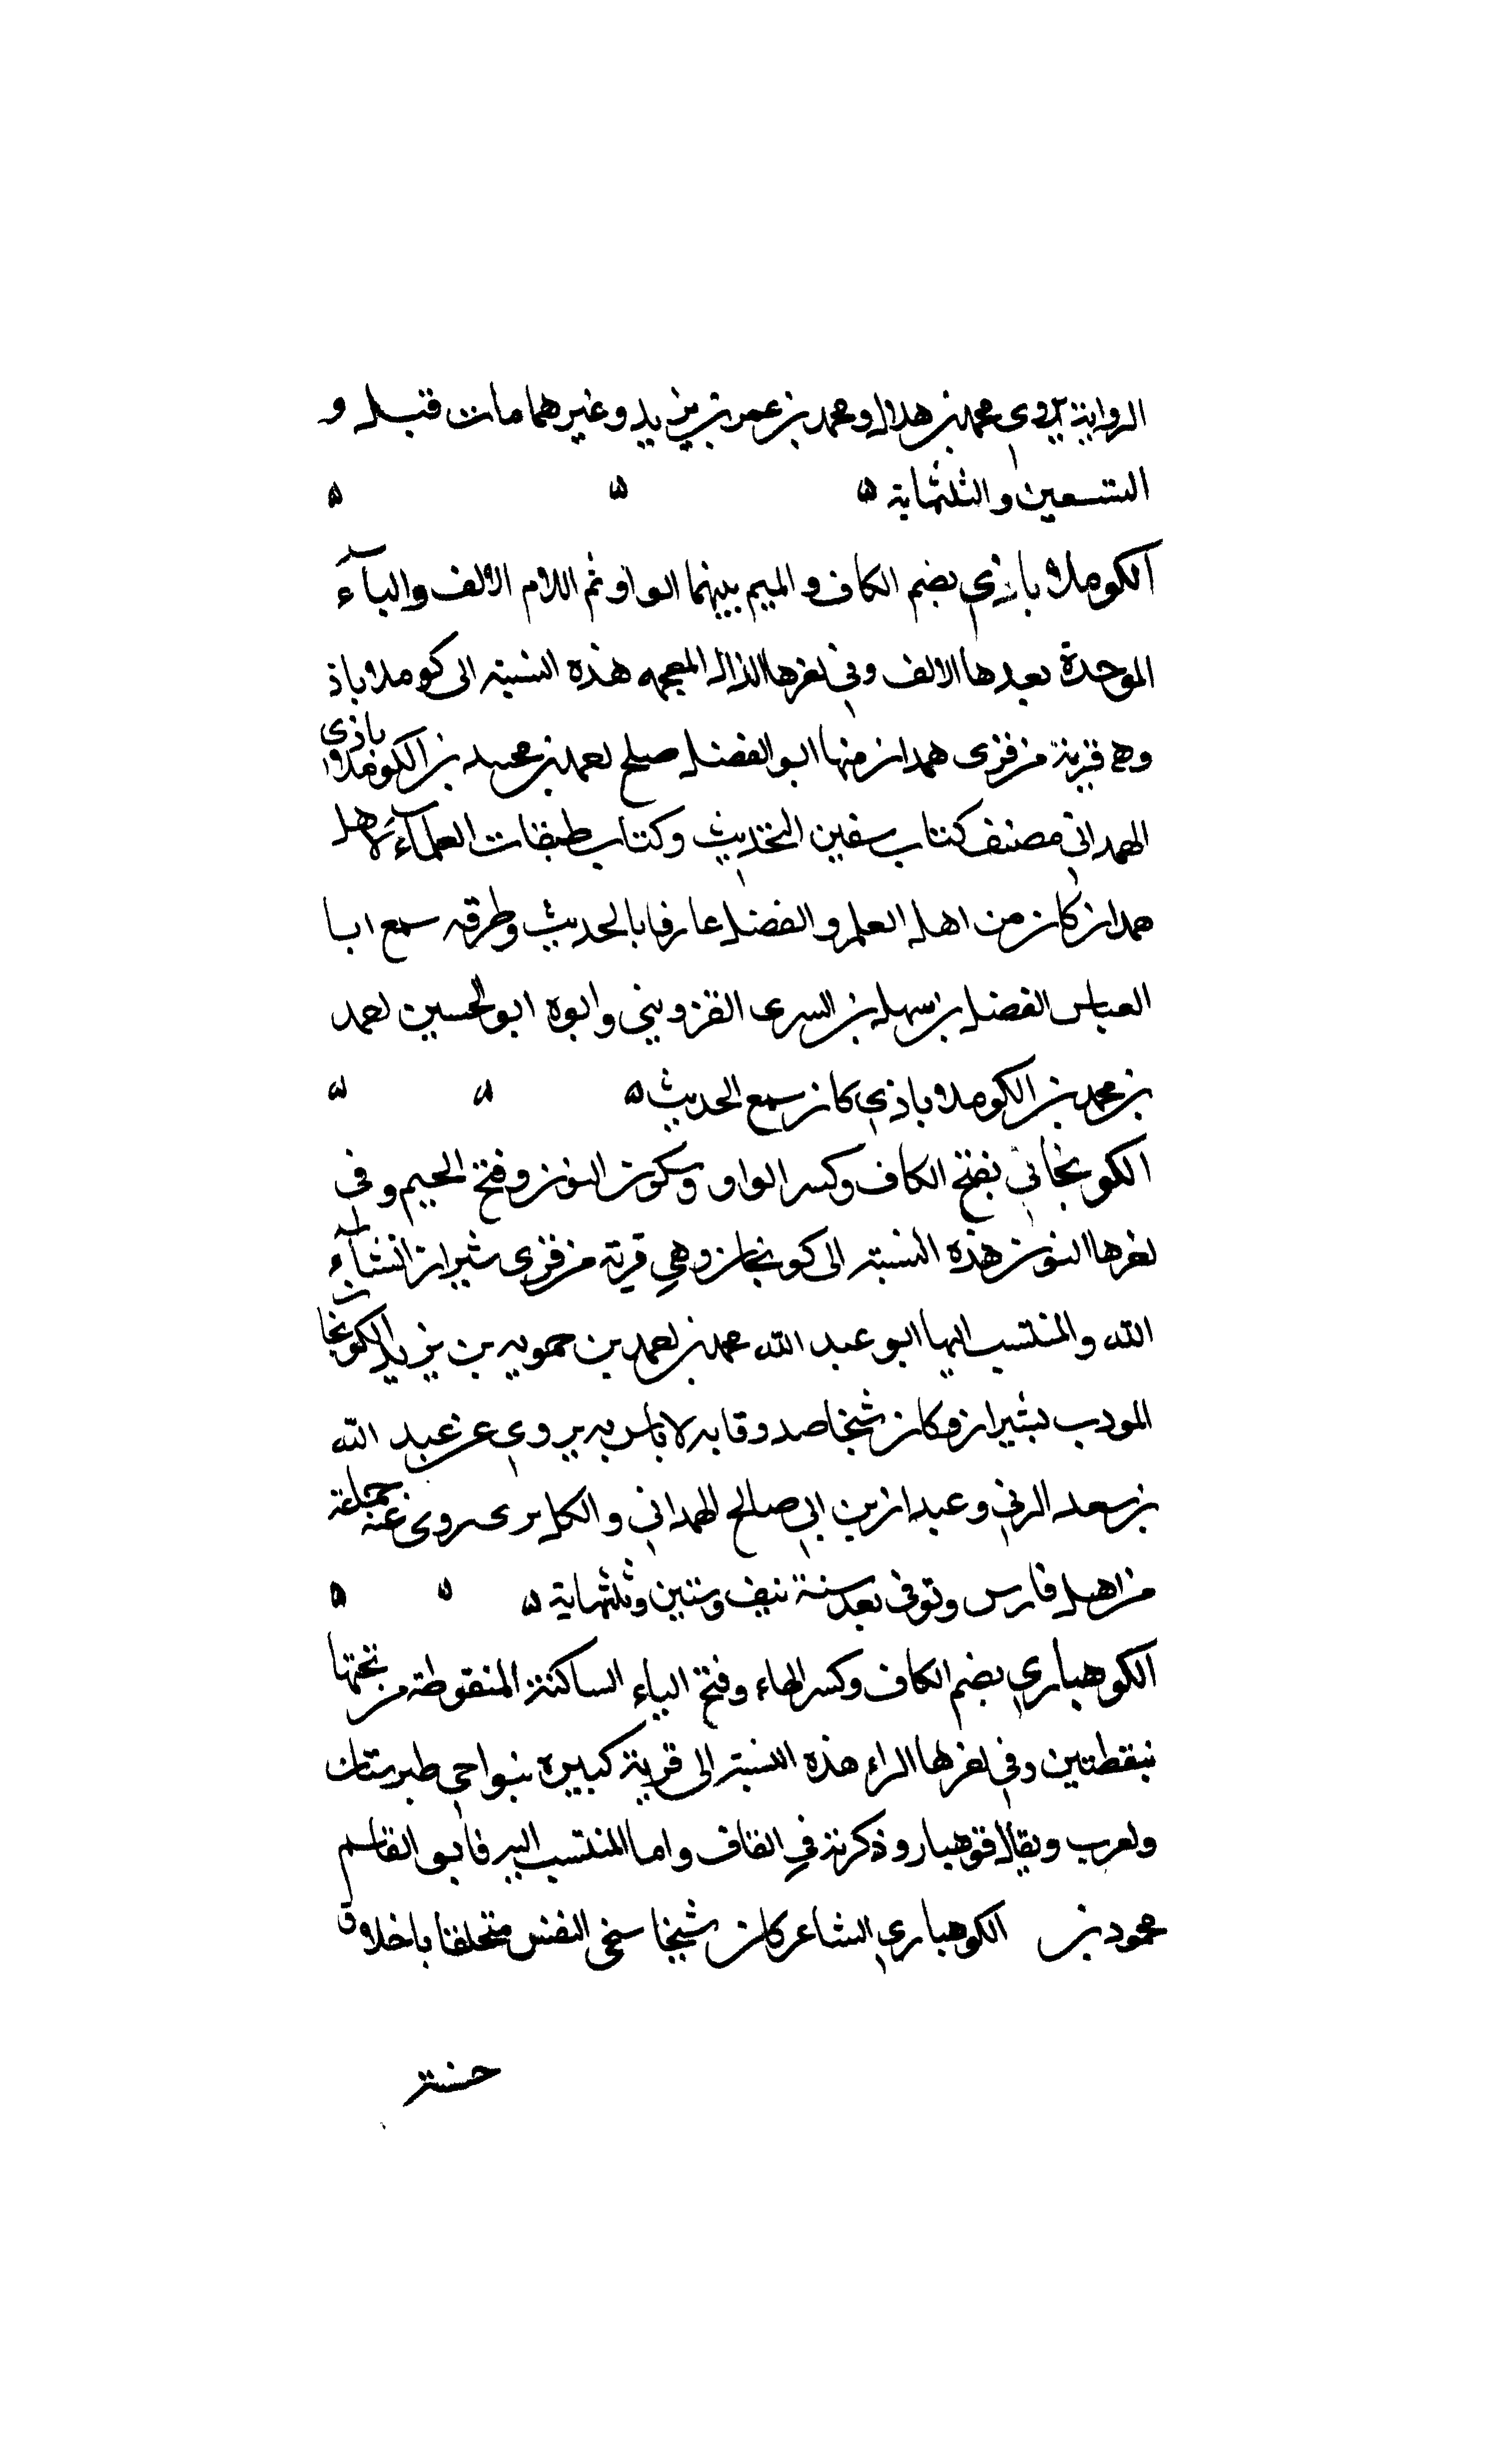 الرواية يروى محمد بن هلال ومحمد بن عمر بن يزيد وغيرهما مات قبل و
التسعين والثلثماية ه ه ه
الكوملاباذي بضم الكاف والميم بينهما الواو ثم اللام الالف والباء
الموحدة بعدها الالف وفي اخرها الذال المعجمه هذه النسبة الى كوملاباذ
وهي قرية من قرى همدان منها ابو الفضل صلح احمد بن محمد بن الكوملاباذى
الهمداني مصنف كتاب سفين التحديث وكتاب طبقات العلماء لاهل
همدان كان من اهل العلم والفضل عارفا بالحديث وطرقه سمع ابا
العباس الفضل بن سهل بن السرى القزويني وابوه ابو الحسين احمد
بن محمد بن الكوملاباذي كان سمع الحديث ه ه ه
الكونجاني بفتح الكاف وكسر الواو وسكون النون وفتح الجيم وفي
اخرها النون هذه النسبة الى كونجان وهي قرية من قرى شيراز انشاء
الله والمنتسب اليها ابو عبد الله محمد بن احمد بن حمويه بن يزيد الكونجا
المودب بشيراز وكان شيخا صدوقا به لا باس به يروي عن عبد الله
بن سعد الرني وعبدان بن ابي صالح الهمداني والكلابرى روى عنه جماعة
من اهل فارس وتوفى بعد سنة نيف وستين وثلثماية ه ه ه
الكوهياري بضم الكاف وكسر الهاء وفتح الياء الساكنة المنقوطة من تحتها
بنقطتين وفي اخرها الراء هذه النسبة الى قرية كبيرة بنواحي طبرستان
ولعرب ويقال قوهيار وذكرته في القاف واما المنتسب اليه فابو القاسم
محمود بن الكوهياري الشاعر كان شيخا سخى النفس متخلقا باخلاق
حسنة